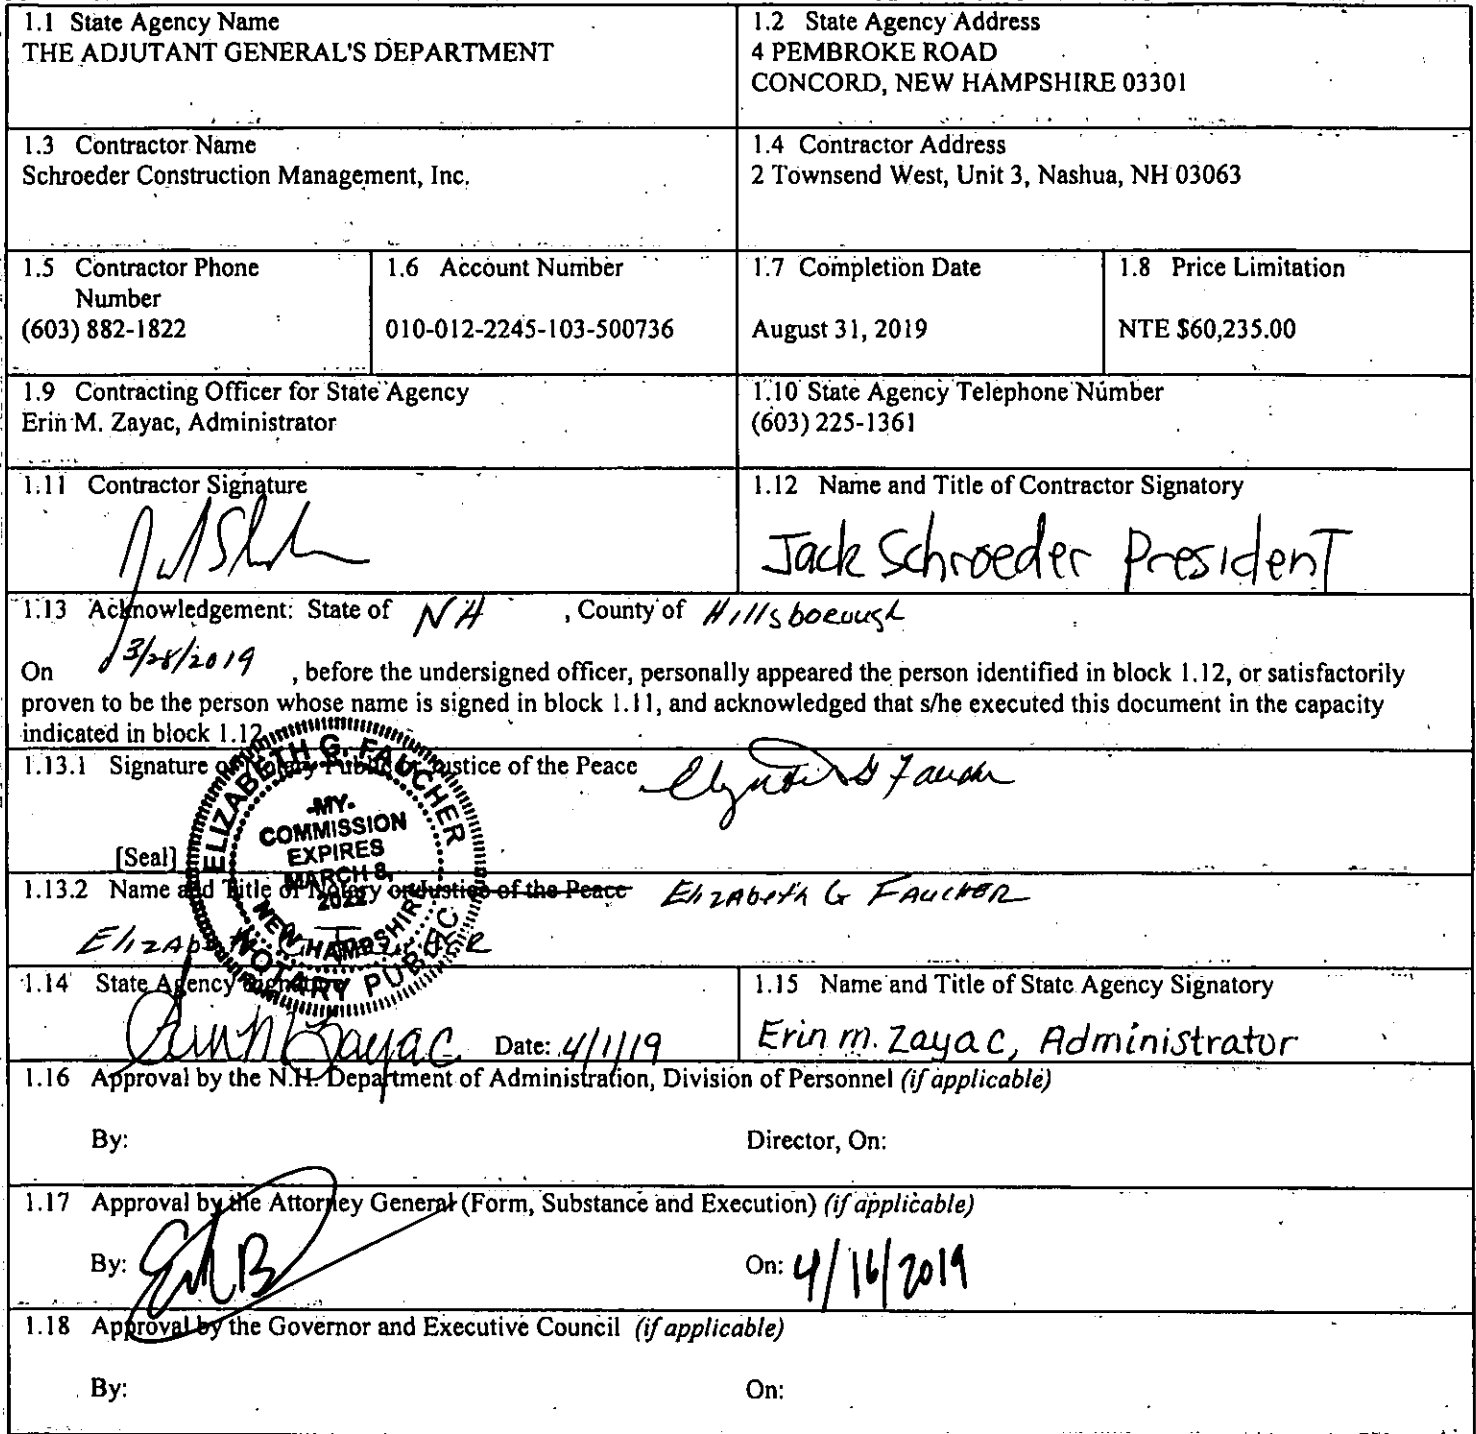 1.1 State Agency Name
THE ADJUTANT GENERAL'S DEPARTMENT
1.2 State Agency Address
4 PEMBROKE ROAD
CONCORD, NEW HAMPSHIRE 03301
1.3 Contractor Name
Schroeder Construction Management, Inc.
1.4 Contractor Address
2 Townsend West, Unit 3, Nashua, NH 03063
1.5 Contractor Phone
Number
(603) 882-1822
1.6 Account Number
010-012-2245-103-500736
1.7 Completion Date
August 31, 2019
1.8 Price Limitation
NTE $60,235.00
1.9 Contracting Officer for State Agency
Erin M. Zayac, Administrator
1.10 State Agency Telephone Number
(603) 225-1361
1.11 Contractor Signature
1.12 Name and Title of Contractor Signatory
Jack Schroeder President
1.13 Acknowledgement: State of NH , County of Hillsborough
On 3/28/2019 , before the undersigned officer, personally appeared the person identified in block 1.12, or satisfactorily
proven to be the person whose name is signed in block 1.11, and acknowledged that s/he executed this document in the capacity
indicated in block 1.12.
1.13.1 Signature of Notary Public or Justice of the Peace
[Seal]
ELIZABETH G. FAUCHER
-MY-
COMMISSION
EXPIRES
MARCH 8,
2022
NEW HAMPSHIRE
NOTARY PUBLIC
1.13.2 Name and Title of Notary or Justice of the Peace Elizabeth G Faucher
Elizabeth G Faucher
1.14 State Agency Signature
Erin M Zayac Date: 4/1/19
1.15 Name and Title of State Agency Signatory
Erin M. Zayac, Administrator
1.16 Approval by the N.H. Department of Administration, Division of Personnel (if applicable)
By: Director, On:
1.17 Approval by the Attorney General (Form, Substance and Execution) (if applicable)
By: On: 4/16/2019
1.18 Approval by the Governor and Executive Council (if applicable)
By: On: